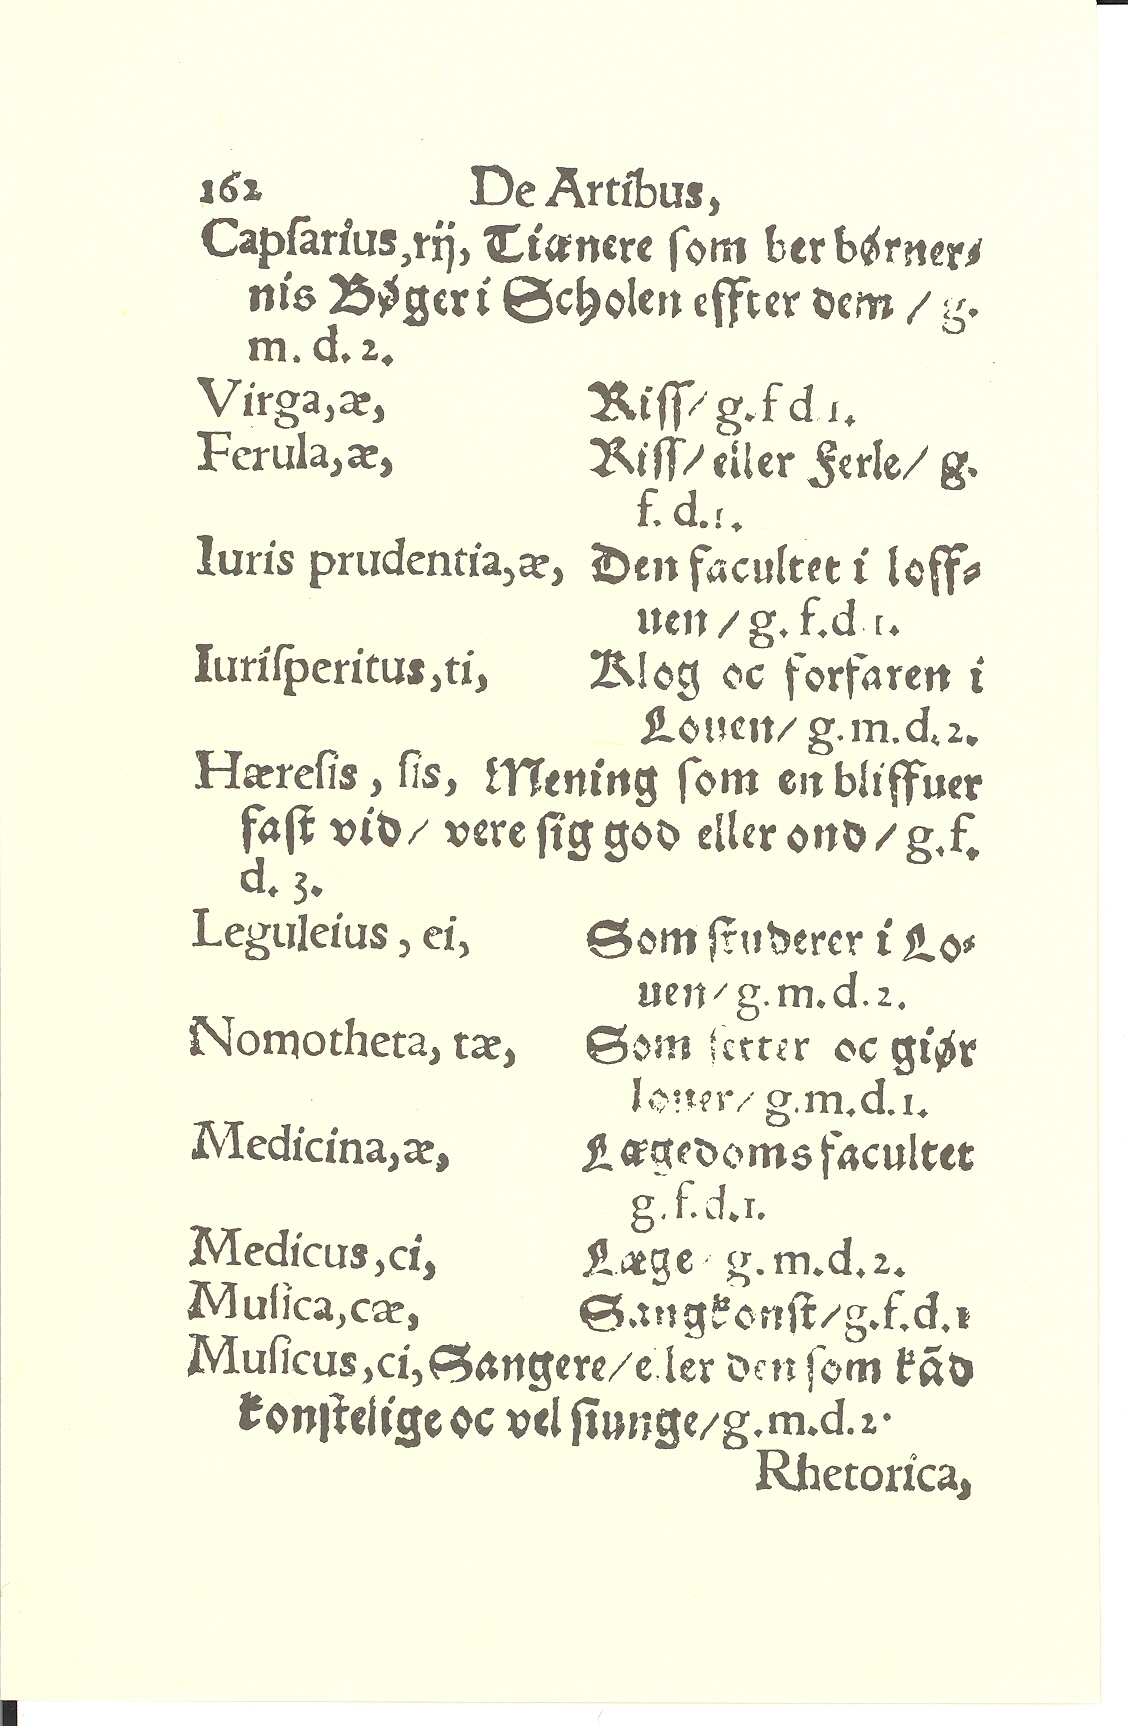 162 De Artibus,
Capſarius,rij, Tiænere ſom ber børner⸗
nis Bøger i Scholen effter dem / g.
m. d. 2.
Virga,æ, Riſſ/ g. f d 1.
Ferula,æ, Riſſ/ eller Ferle/ g.
f. d. 1.
Iuris prudentia,æ, Den facultet i loff⸗
uen / g. f. d 1.
Iuriſperitus,ti, Klog oc forfaren i
Louen/ g. m. d. 2.
Hæreſis , ſis, Mening ſom en bliffuer
faſt vid/ vere ſig god eller ond / g. f.
d. 3.
Leguleius , ei, Som ſtuderer i Lo⸗
uen/ g. m. d. 2.
Nomotheta, tæ, Som ſetter oc giør
louer/ g. m. d. 1.
Medicina,æ, Lægedoms facultet
g. f. d. 1.
Medicus,ci, Læge/ g. m. d. 2.
Muſica,cæ, Sangkonſt/g. f. d. 1
Muſicus,ci, Sangere/eller den ſom kãd
konſtelige oc vel ſiunge/g. m. d. 2.
Rhetorica,